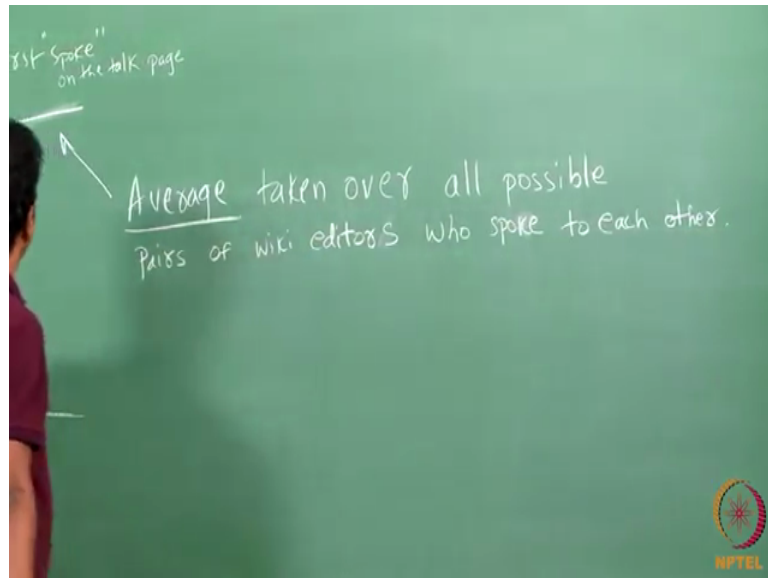 rst "spoke"
on the talk page
Average taken over all possible
pairs of wiki editors who spoke to each other.
NPTEL